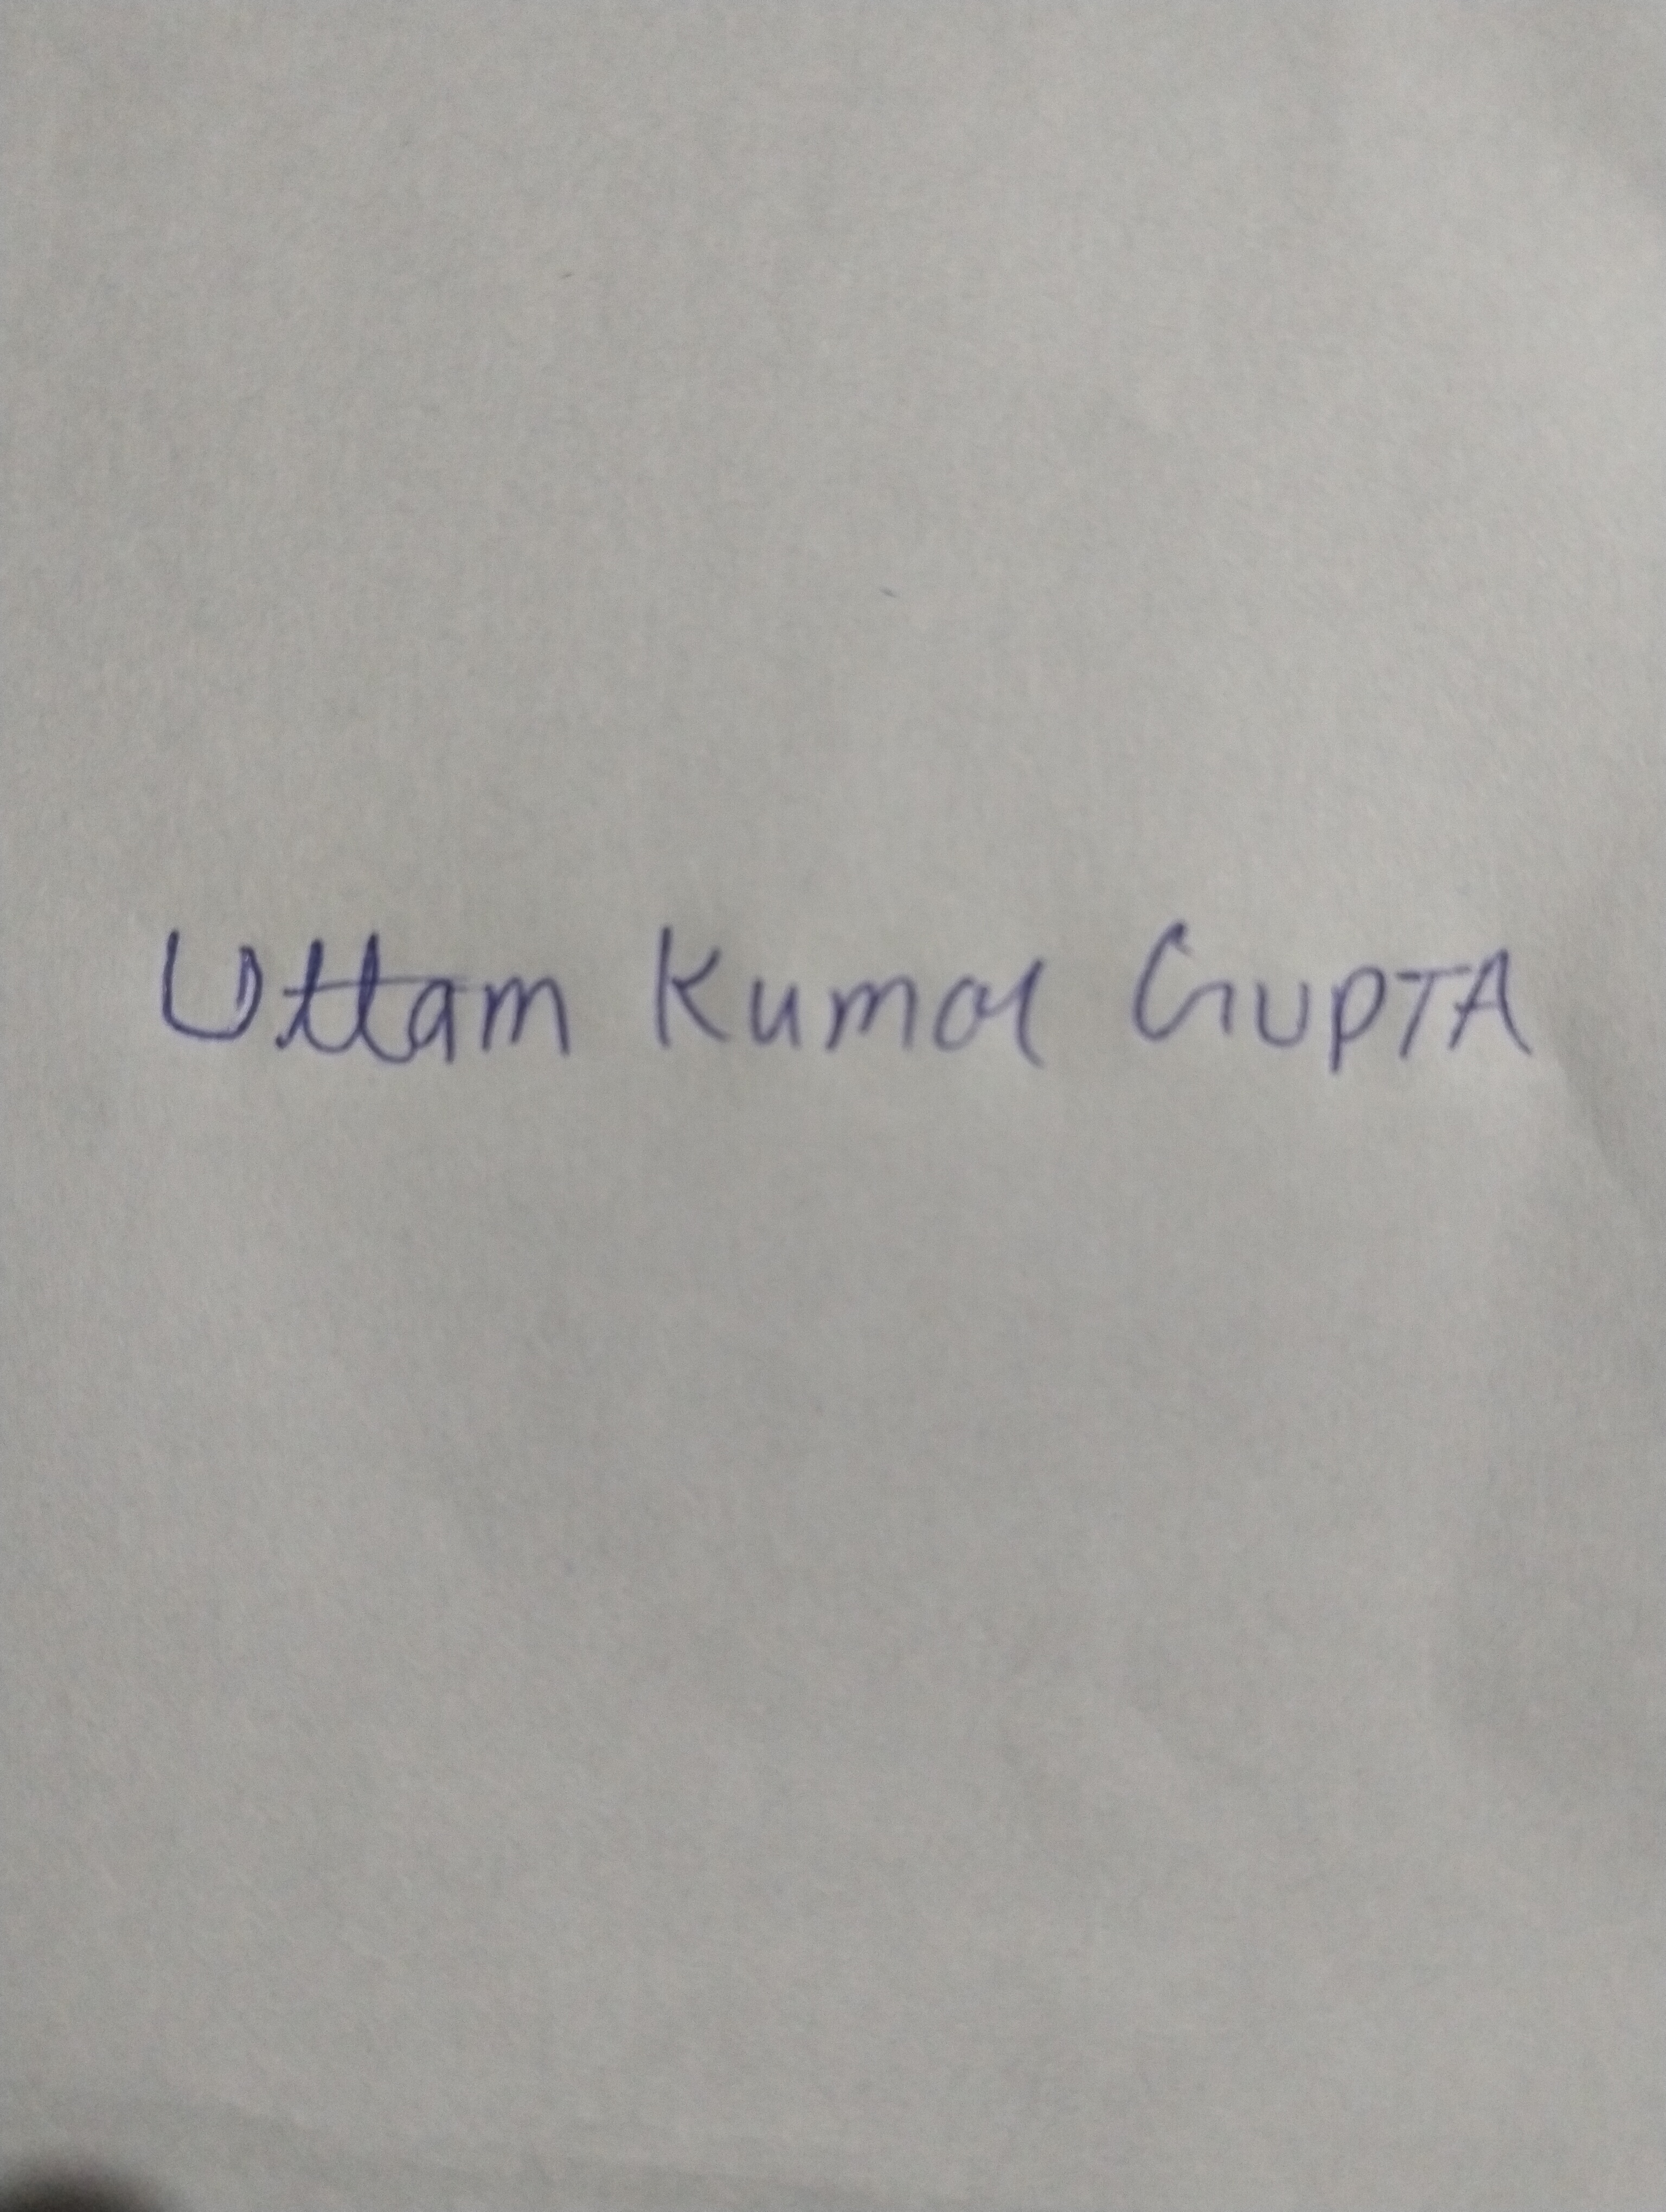 Uttam Kumar GUPTA